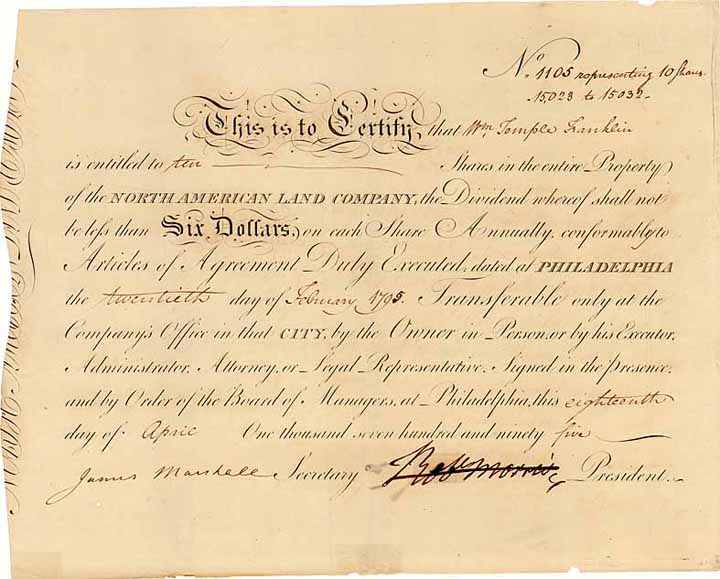 No. 1105 representing 10 Shares
15,023 to 15032-
This is to Certify, that Wm. Temple Franklin
is entitled to ten Shares in the entire Property
of the NORTH AMERICAN LAND COMPANY, the Dividend whereof shall not
be lefs than Six Dollars, on each Share Annually, conformably to
Articles of Agreement Duly Executed, dated at PHILADELPHIA
the twentieth day of February 1795. Transferable only at the
Company's Office in that CITY, by the Owner in Person, or by his Executor,
Administrator, Attorney, or Legal Representative. Signed in the presence,
and by Order of the Board of Managers, at Philadelphia, this eighteenth
day of April One thousand seven hundred and ninety five
James Marshall Secretary Robt Morris President.